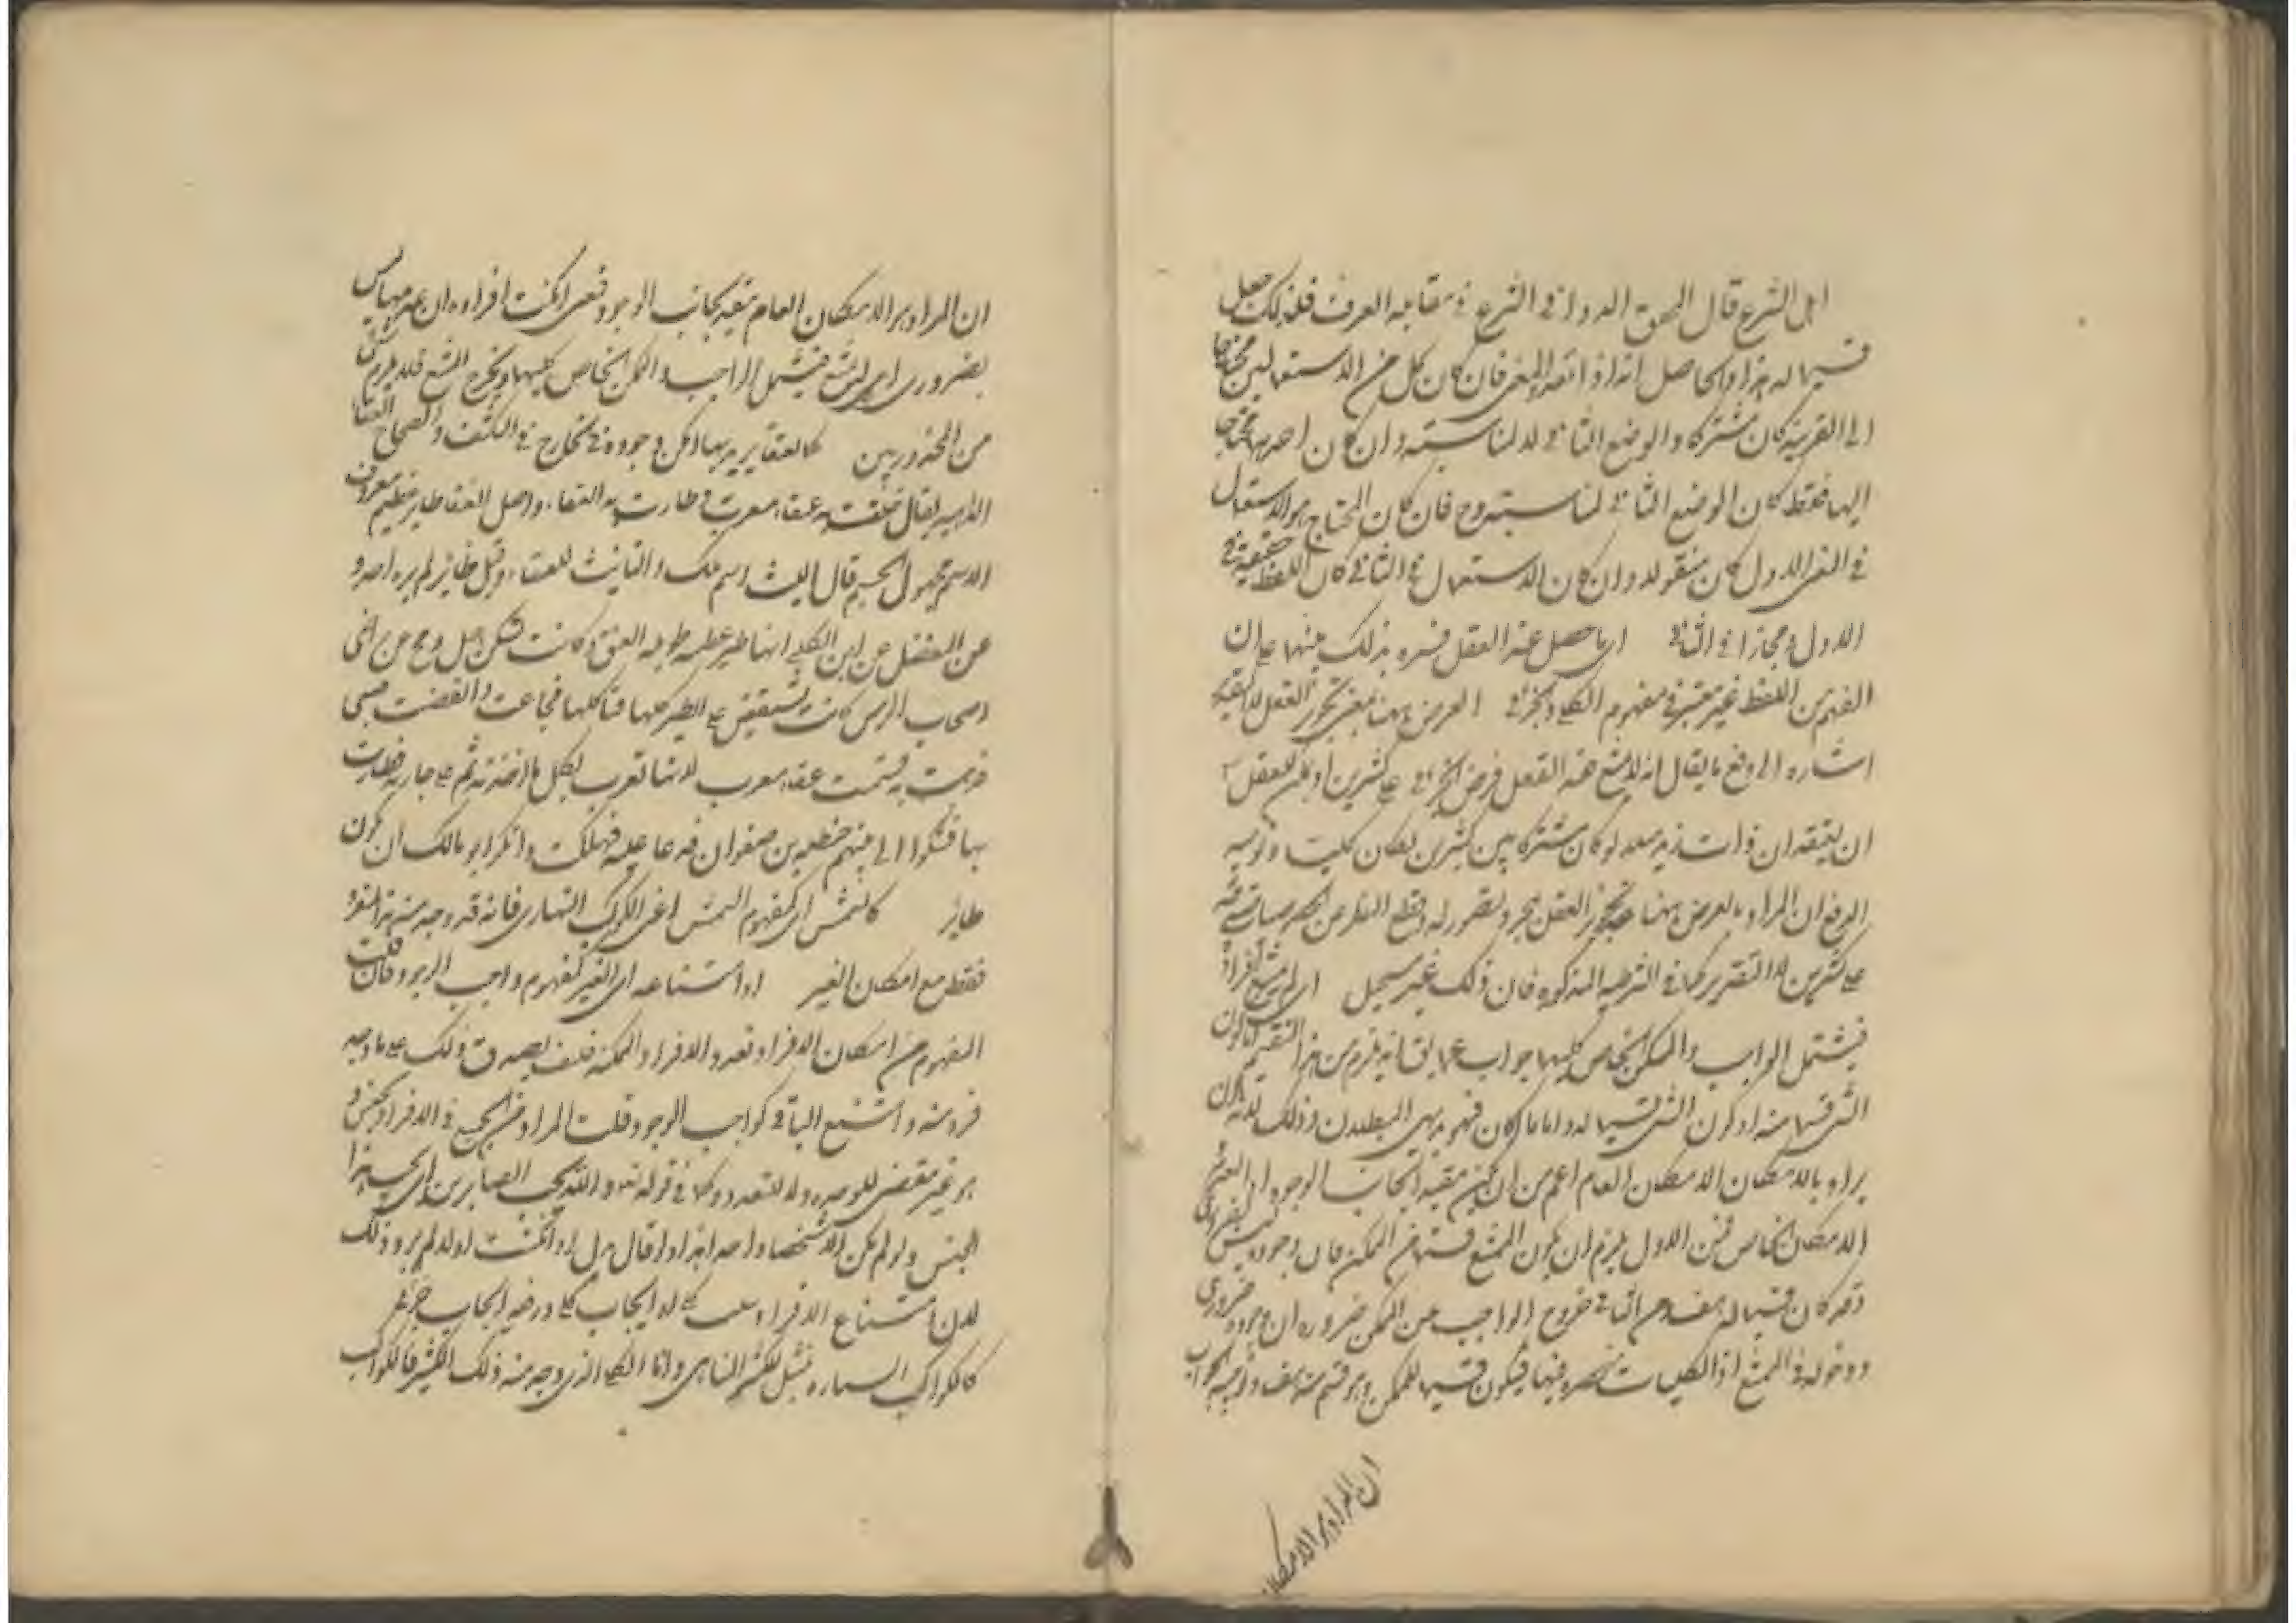 اهل الشرع قال المحقق الدواني الشرع في مقابلة العرف فلذلك جعل
قسيما له هذا والحاصل انه اذا تعدد المعنى فان كان كل من الاستعمالين محتاجا
الى القرينة كان مشتركا والوضع الثاني لا لمناسبته وان كان احدهما محتاجا
اليها فقط كان الوضع الثاني لمناسبته وح فان كان المحتاج هو الاستعمال
في المعنى الاول كان منقولا وان كان الاستعمال في الثاني كان اللفظ حقيقة في
الاول ومجازا في الثاني اي ما حصل عند العقل فسره بذلك تنبيها على ان
الفهم من اللفظ غير معتبر في مفهوم الكلي والجزئي الفرض ههنا بمعنى تجويز العقل لا التقدير
اشارة الى دفع ما يقال انه لا يمتنع عند العقل فرض الجزئي على كثيرين اذ يمكن للعقل
ان يعتقد ان ذات زيد مثلا لو كان مشتركا بين كثيرين لكان كليا وتوجيه
الدفع ان المراد بالفرض ههنا تجويز العقل بمجرد تصوره وقطع النظر عن
على كثيرين لا التقدير كما في الشرطية المذكورة فان ذلك غير مستحيل اي لم يمتنع افراده
فيشتمل الواجب والممكن الخاص كليهما جواب عما يقال انه يلزم من هذا التقسيم اما كون
الشيء قسما منه او كون الشيء قسيما له واياما كان فهو بديهي البطلان وذلك لانه
يراد بالامكان الامكان العام اعم من ان يكون مقيدا بجانب الوجود او العدم
الامكان الخاص فمن الاول يلزم ان يكون الممتنع قسما من الممكن فان وجوده ليس بضروري
وقد كان قسيما له هف ومن الثاني خروج الواجب عن الممكن ضرورة ان وجوده ضروري
ودخوله في الممتنع اذ الكليات منحصرة فيها فيكون قسيما للممكن وهو قسم منه هف وتوجيه الجواب
ان المراد بالامكان
ان المراد بالامكان العام مقيد بجانب الوجود فمعنى امكنت افراده ان عدمها ليس
بضروري اي لم يمتنع فيشمل الواجب والممكن الخاص كليهما ويخرج الممتنع فلا يلزم شيء
من المحذورين كالعنقاء يريد بها امكن وجوده في الخارج في الكشف والصحاح العنقاء
الداهية يقال حلقت به عنقاء مغرب وطارت به العنقاء واصل العنقاء طاير عظيم معروف
الاسم مجهول الجسم قال الليث اسم ملك والتانيث للفظ العنقاء وقيل طاير لم يره احد و
عن المفضل عن ابن الكلبي انها طير عظيمة طويلة العنق وكانت تسكن جبل دمح من اراضي
اصحاب الرس كانت تنقض على الطير كلها فتاكلها فجاعت وانقضت على صبي
فذهبت به فسميت عنقاء مغرب لانها تغرب بكل ما اخذته ثم على جارية فطارت
بها فشكوا الى نبيهم حنظلة بن صفوان فدعا عليه فهلكت وانكر ابو مالك ان يكون
طاير كالشمس اي كمفهوم الشمس اعني الكوكب النهاري فانه قد وجد منه هذا الفرد
فقط مع امكان الغير او امتناعه اي الغير كمفهوم واجب الوجود فان قلت
المفهوم من امكان الافراد تعدد الافراد الممكنة فكيف يصدق ذلك على ما وجد
فرد منه وامتنع الباقي كواجب الوجود قلت المراد من الجمع في الافراد الجنس و
هو غير مقتضى للوحدة ولا للتعدد وكما في قوله تعالى والله يحب الصابرين اي يحب هذا
الجنس ولو لم يكن الا شخصا واحدا هذا ولو قال بدل او امكنت اولا لم يرد ذلك
لان امتناع الافراد سلب كلي او ايجاب كلي ورفعه ايجاب جزئي
كالكواكب السيارة تمثيل للكثير المتناهي واما الكلي الذي وجد منه ذلك الكثير فالكواكب